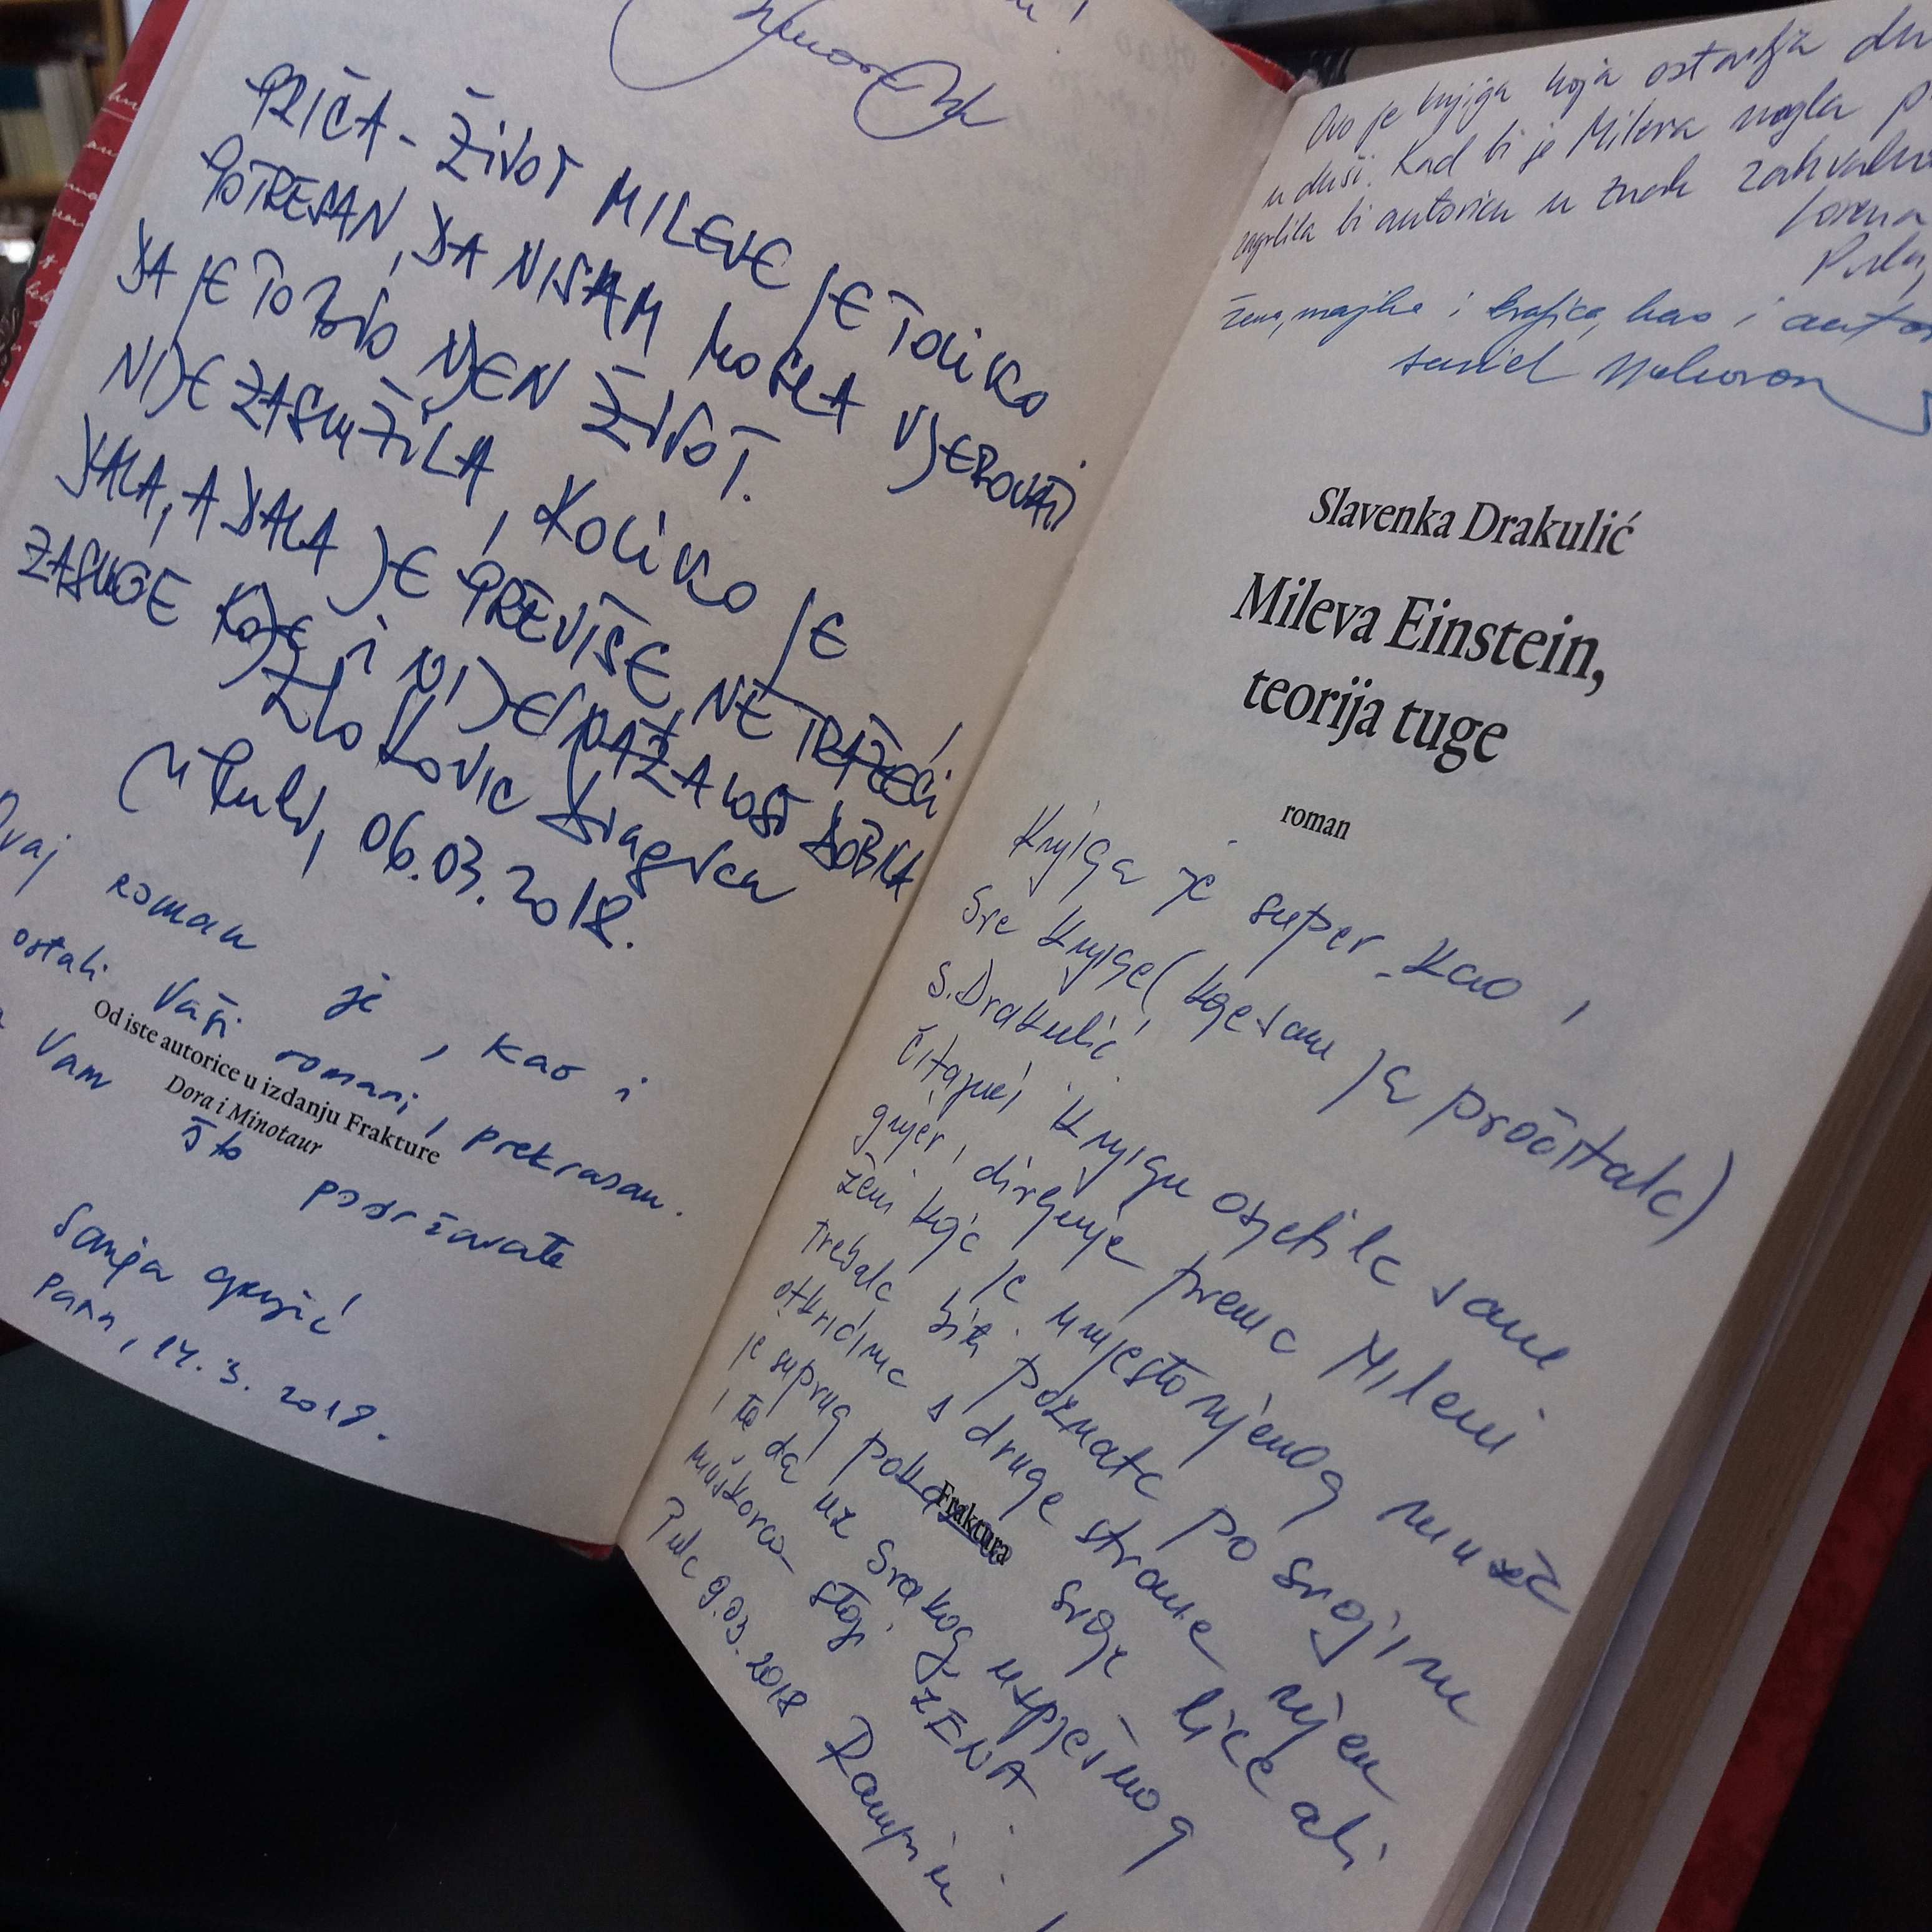 PRIČA - ŽIVOT MILEVE JE TOLIKO
POTRESAN, DA NISAM MOGLA VJEROVATI
DA JE TO BIO NJEN ŽIVOT.
NIJE ZASLUŽILA, KOLIKO JE
DALA, A DALA JE PREVIŠE, NE TRAŽEĆI
ZASLUGE KOJE I NIJE NAŽALOST DOBILA
Zlokovic Dragica
U Puli, 06.03.2018.
Ovaj roman je, kao i
ostali Vaši romani, prekrasan.
Vam što
Od iste autorice u izdanju Frakture
Dora i Minotaur
Sanja Grujić
14. 3. 2018.
Ovo je knjiga koja ostavlja
u duši. Kad bi je Mileva mogla
zagrlila bi autoricu u znak
Lorena
žena, majka i kao i
Slavenka Drakulić
Mileva Einstein,
teorija tuge
roman
Knjiga je super - kao i
sve knjige (koje sam ja pročitala)
S. Drakulić.
Čitajući knjigu osjetila sam
gnjev, divljenje prema Milevi
ženi koja je umjesto njenog muža
trebala biti poznata po svojim
otkrićima s druge strane njen
je suprug pokazao svoje lice ali
i to da uz svakog uspješnog
muškarca stoji ŽENA.
Fraktura
Pula 9.03.2018